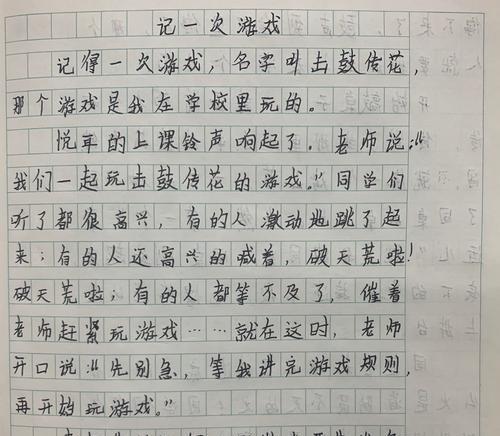 记一次游戏
记得一次游戏，名字叫击鼓传花，
那个游戏是我在学校里玩的。
悦耳的上课铃声响起了，老师说：“
我们一起玩击鼓传花的游戏。”同学们
听了都很高兴，有的人激动地跳了起
来；有的人还高兴的喊着，破天荒啦！
破天荒啦；有的人都等不及了，催着
老师赶紧玩游戏……就在这时，老师
开口说：“先别急，等我讲完游戏规则，
再开始玩游戏。”